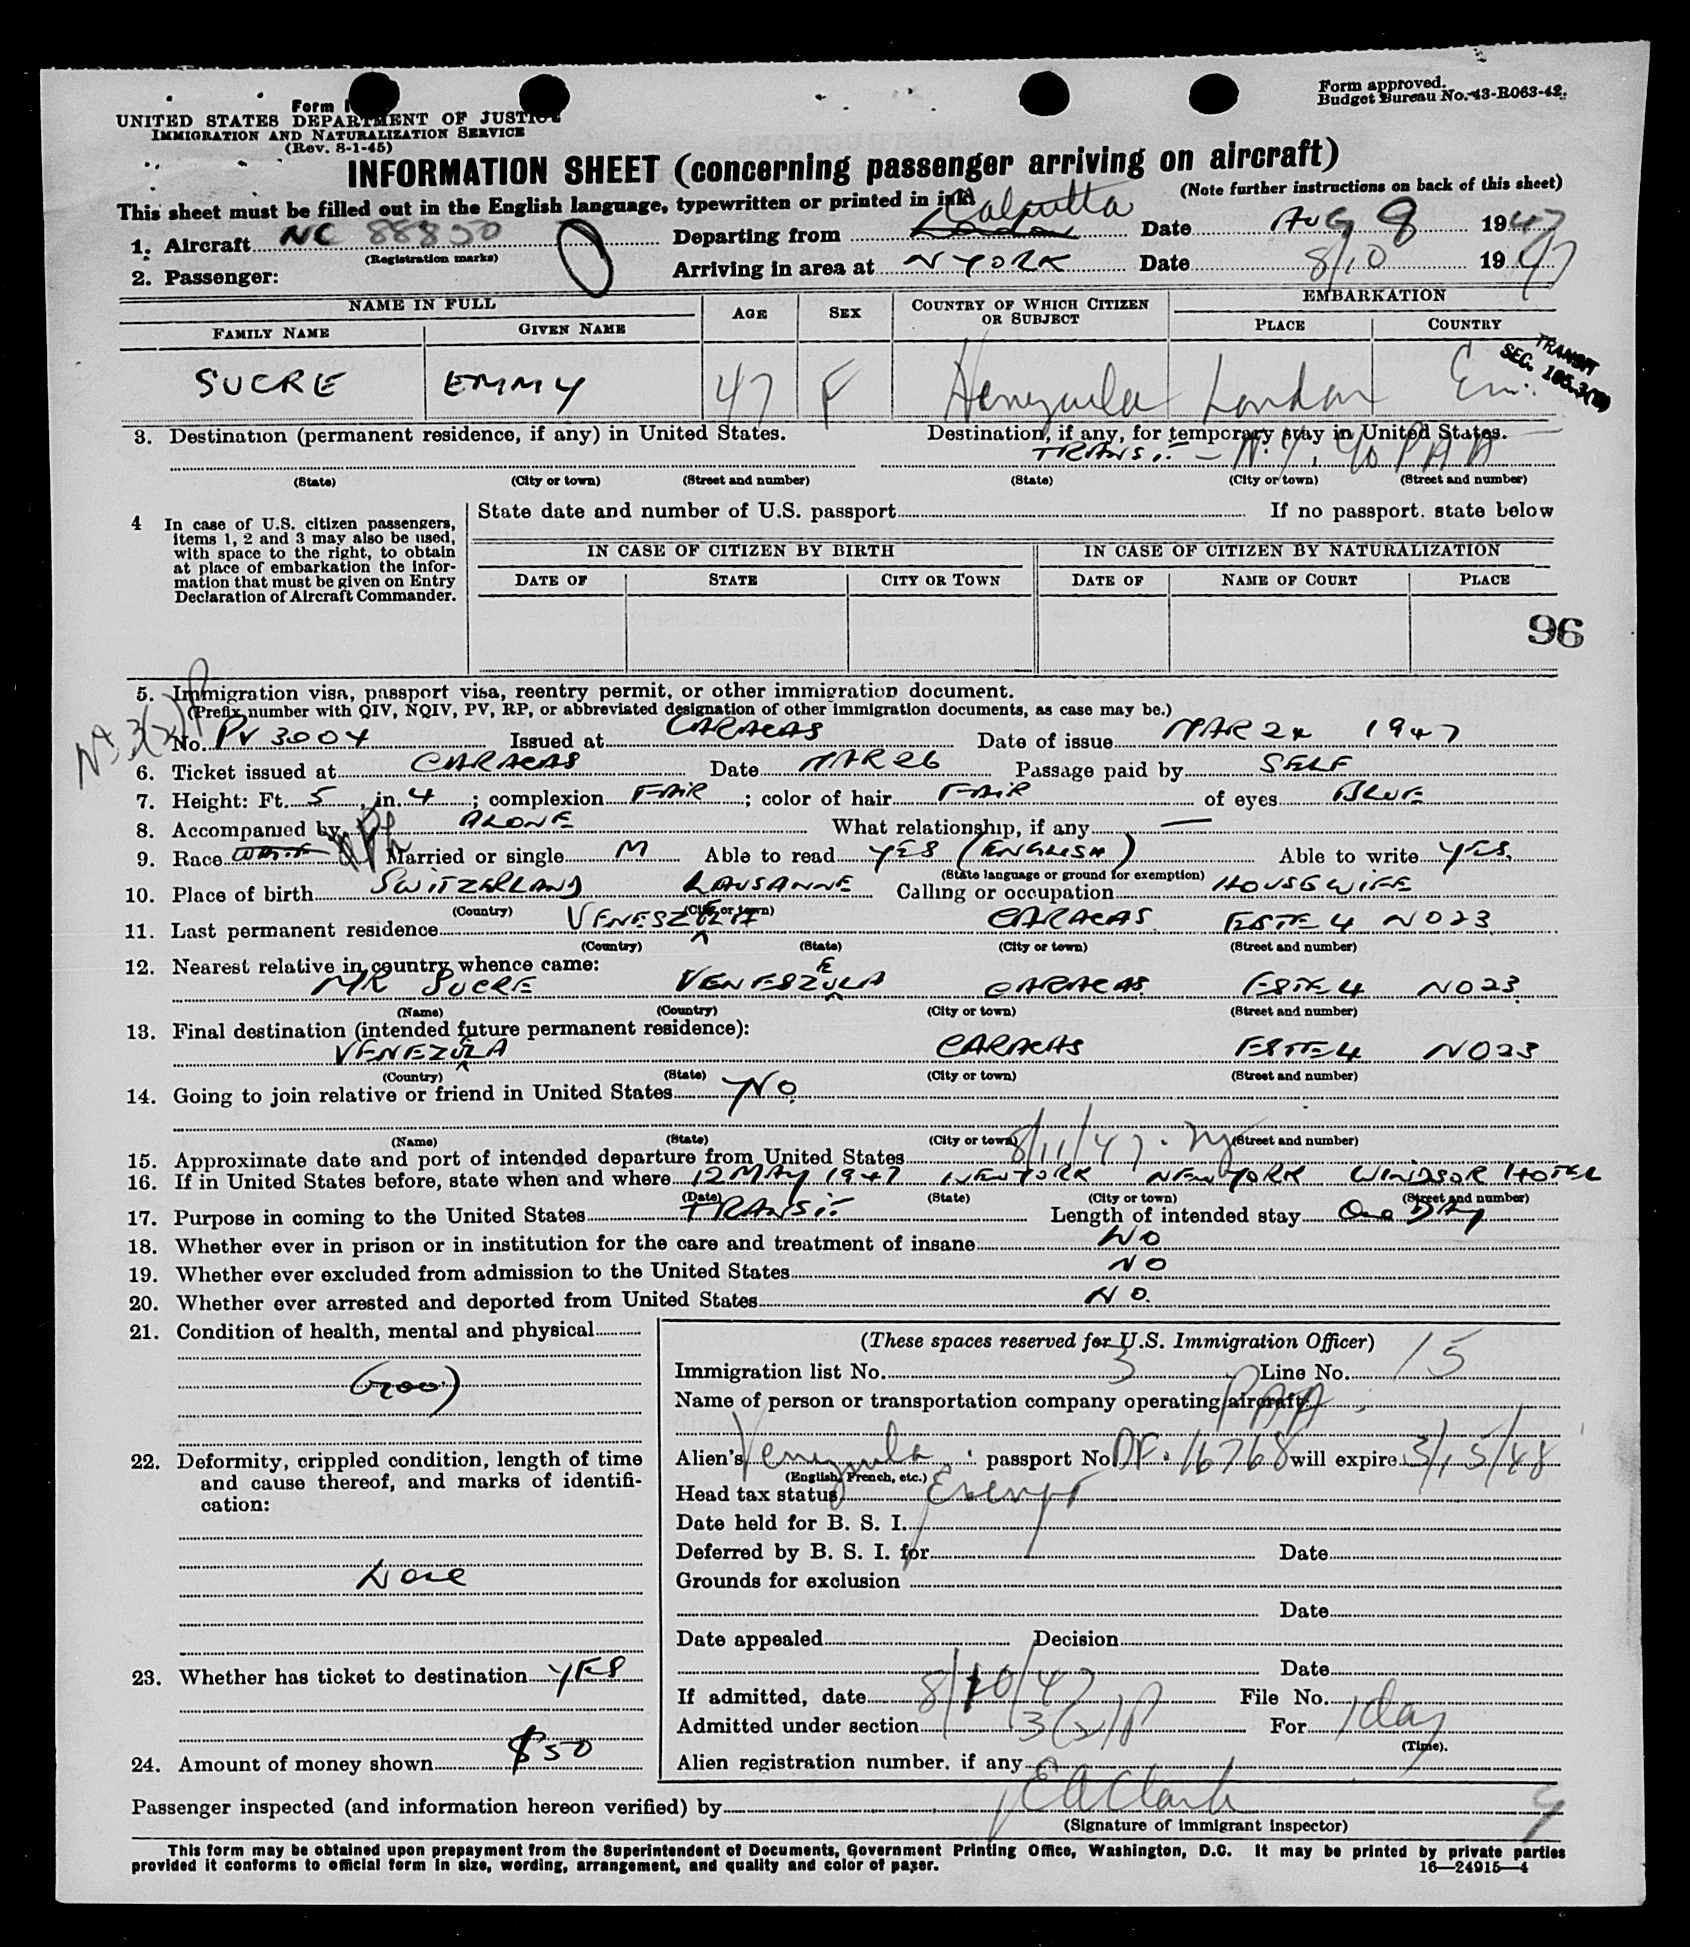 Form approved.
Budget Bureau No. 43-R063-42.
Form
UNITED STATES DEPARTMENT OF JUSTICE
IMMIGRATION AND NATURALIZATION SERVICE
(Rev. 8-1-45)
INFORMATION SHEET (concerning passenger arriving on aircraft)
(Note further instructions on back of this sheet)
This sheet must be filled out in the English language, typewritten or printed in ink.
1. Aircraft NC 88850 Departing from London Calcutta Date AUG 9 1947
(Registration marks)
2. Passenger: Arriving in area at N YORK Date 8/10 1947
NAME IN FULL AGE SEX COUNTRY OF WHICH CITIZEN OR SUBJECT EMBARKATION
FAMILY NAME GIVEN NAME PLACE COUNTRY
TRANSIT
SEC.
SUCRE EMMY 47 F Venezuela London
3. Destination (permanent residence, if any) in United States. Destination, if any, for temporary stay in United States.
TRANSIT - N.Y. c/o PAA
(State) (City or town) (Street and number) (State) (City or town) (Street and number)
4 In case of U.S. citizen passengers, items 1, 2 and 3 may also be used, with space to the right, to obtain at place of embarkation the information that must be given on Entry Declaration of Aircraft Commander.
State date and number of U.S. passport If no passport. state below
IN CASE OF CITIZEN BY BIRTH IN CASE OF CITIZEN BY NATURALIZATION
DATE OF STATE CITY OR TOWN DATE OF NAME OF COURT PLACE
96
5. Immigration visa, passport visa, reentry permit, or other immigration document.
(Prefix number with QIV, NQIV, PV, RP, or abbreviated designation of other immigration documents, as case may be.)
No. PV 3004 Issued at CARACAS Date of issue MAR 24 1947
6. Ticket issued at CARACAS Date MAR 26 Passage paid by SELF
7. Height: Ft. 5, in. 4; complexion FAIR; color of hair FAIR of eyes BLUE
8. Accompanied by ALONE What relationship, if any —
9. Race WHITE Married or single M Able to read YES (ENGLISH) Able to write YES.
(State language or ground for exemption)
10. Place of birth SWITZERLAND LAUSANNE Calling or occupation HOUSEWIFE
(Country) (City or town)
11. Last permanent residence VENESZUELA CARACAS ESTE 4 NO 23
(Country) (State) (City or town) (Street and number)
12. Nearest relative in country whence came:
MR SUCRE VENESZUELA CARACAS ESTE 4 NO 23
(Name) (Country) (City or town) (Street and number)
13. Final destination (intended future permanent residence):
VENEZUELA CARACAS ESTE 4 NO 23
(Country) (State) (City or town) (Street and number)
14. Going to join relative or friend in United States NO
(Name) (State) (City or town) (Street and number)
15. Approximate date and port of intended departure from United States 8/11/47. NY
16. If in United States before, state when and where 12 MAY 1947 NEW YORK NEW YORK WINDSOR HOTEL
(Date) (State) (City or town) (Street and number)
17. Purpose in coming to the United States TRANSIT Length of intended stay One DAY
18. Whether ever in prison or in institution for the care and treatment of insane NO
19. Whether ever excluded from admission to the United States NO
20. Whether ever arrested and deported from United States NO.
21. Condition of health, mental and physical
GOOD
22. Deformity, crippled condition, length of time and cause thereof, and marks of identification:
None
23. Whether has ticket to destination YES
24. Amount of money shown $50
(These spaces reserved for U.S. Immigration Officer)
Immigration list No. 3 Line No. 15
Name of person or transportation company operating aircraft PAA
Alien's Venezuela passport No. DF. 16768 will expire 3/15/48
(English, French, etc.)
Head tax status Exempt
Date held for B. S. I.
Deferred by B. S. I. for Date
Grounds for exclusion
Date
Date appealed Decision
Date
If admitted, date 8/10/47 File No.
Admitted under section 3(2)P For 1 day
(Time).
Alien registration number. if any
Passenger inspected (and information hereon verified) by E A Clark
(Signature of immigrant inspector)
This form may be obtained upon prepayment from the Superintendent of Documents, Government Printing Office, Washington, D.C. It may be printed by private parties
provided it conforms to official form in size, wording, arrangement, and quality and color of paper.
16—24915—4